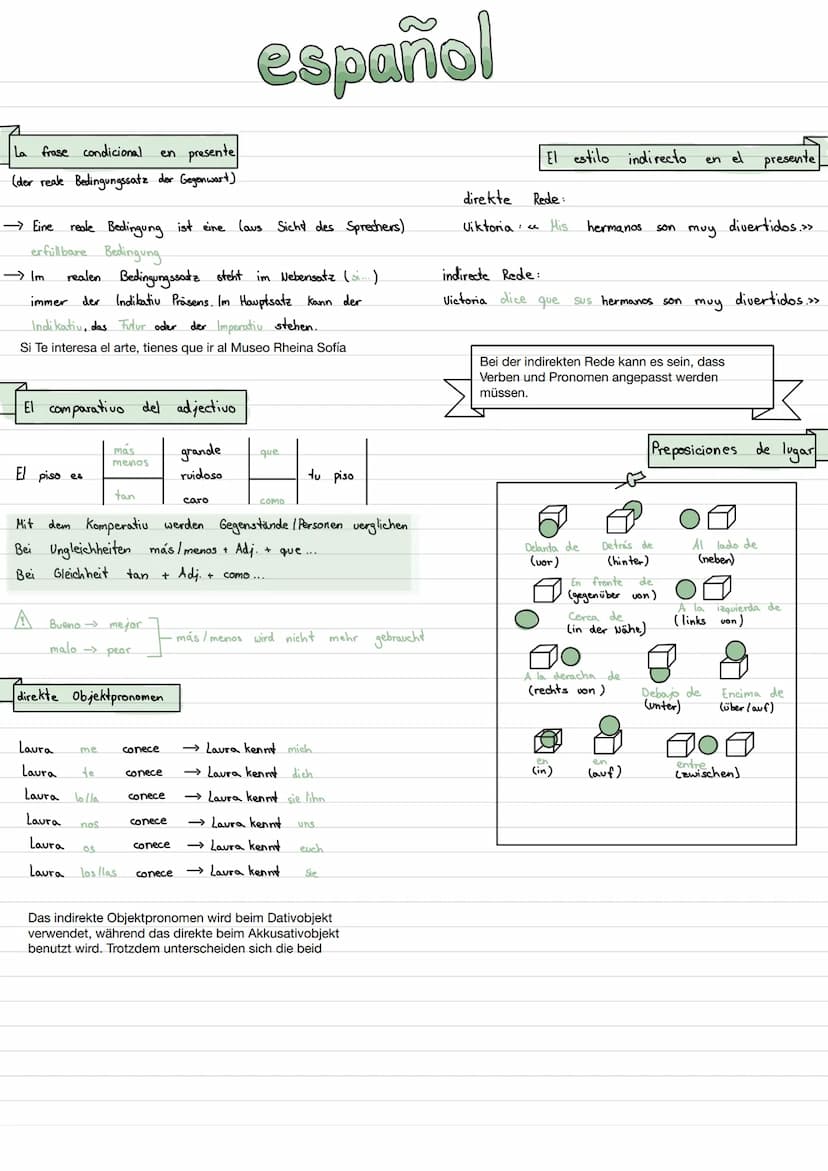 español
La frase condicional en presente
(der reale Bedingungssatz der Gegenwart)
→ Eine reale Bedingung ist eine (aus Sicht des Sprechers)
erfüllbare Bedingung
→ Im realen Bedingungssatz steht im Nebensatz (si...)
immer der Indikativ Präsens. Im Hauptsatz kann der
Indikativ, das Futur oder der Imperativ stehen.
Si Te interesa el arte, tienes que ir al Museo Rheina Sofía
El comparativo del adjectivo
más
menos
grande
que
El piso es
ruidoso
tu piso
tan
caro
como
Mit dem Komperativ werden Gegenstände/Personen verglichen
Bei Ungleichheiten más/menos + Adj. + que ...
Bei Gleichheit tan + Adj. + como ...
Bueno → mejor
malo → pear
más/menos wird nicht mehr gebraucht
direkte Objektpronomen
Laura me conece → Laura kennt mich
Laura te conece → Laura kennt dich
Laura lo/la conece → Laura kennt sie/ihn
Laura nos conece → Laura kennt uns
Laura os conece → Laura kennt euch
Laura los/las conece → Laura kennt sie
Das indirekte Objektpronomen wird beim Dativobjekt
verwendet, während das direkte beim Akkusativobjekt
benutzt wird. Trotzdem unterscheiden sich die beid
El estilo indirecto en el presente
direkte Rede:
Viktoria: << Mis hermanos son muy divertidos.>>
indirecte Rede:
Victoria dice que sus hermanos son muy divertidos.>>
Bei der indirekten Rede kann es sein, dass
Verben und Pronomen angepasst werden
müssen.
Preposiciones de lugar
Delanta de
(vor)
Detrás de
(hinter)
Al lado de
(neben)
En frente de
(gegenüber von)
A la izquierda de
(links von)
Cerca de
(in der Nähe)
A la deracha de
(rechts von)
Debajo de
(unter)
Encima de
(über/auf)
en
(in)
en
(auf)
entre
(zwischen)